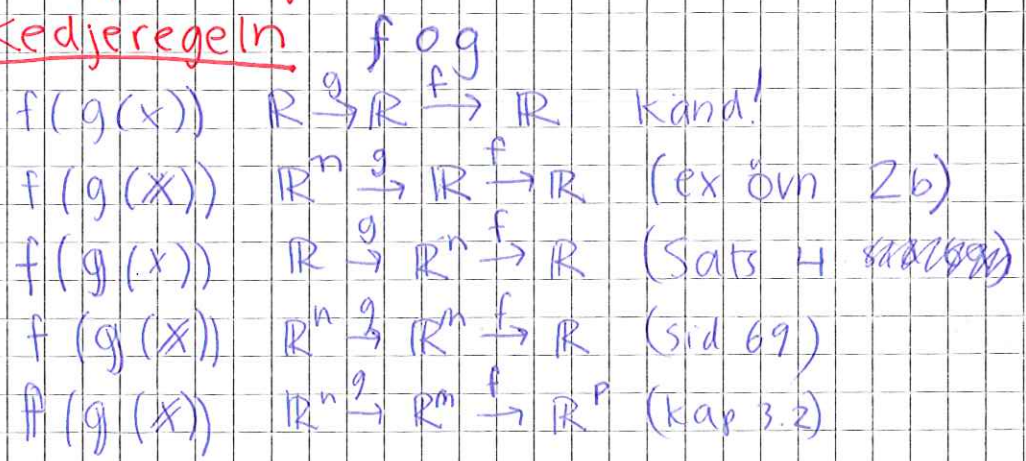 Kedjeregeln f o g
f(g(x)) ℝ →g ℝ →f ℝ Känd!
f(g(𝕩)) ℝⁿ →g ℝ →f ℝ (ex övn 26)
f(𝕘(x)) ℝ →g ℝⁿ →f ℝ (Sats 4
f(𝕘(𝕩)) ℝⁿ →g ℝᵐ →f ℝ (sid 69)
𝕗(𝕘(𝕩)) ℝⁿ →g ℝᵐ →f ℝᵖ (kap 3.2)